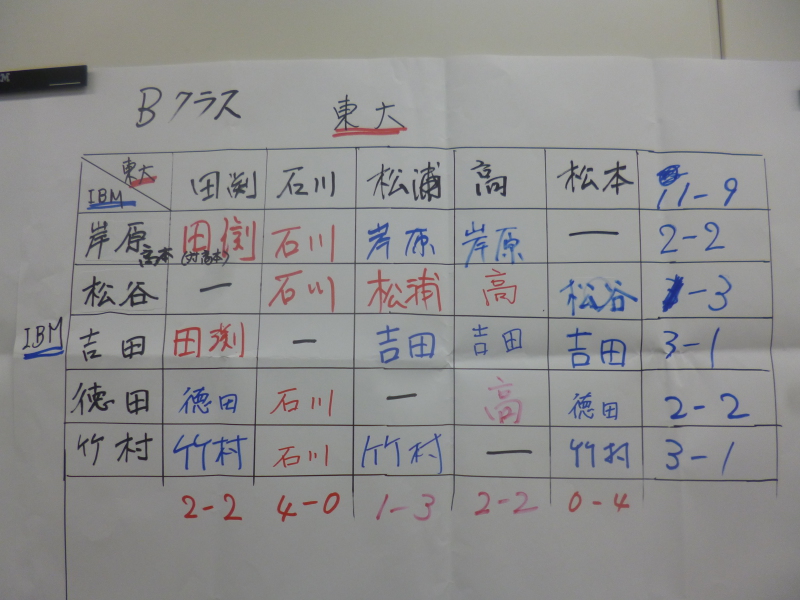 Bクラス 東大
東大 田渕 石川 松浦 高 松本 11-9
IBM
岸原 田渕 石川 岸原 岸原 — 2-2
高本 (対高本)
松谷 — 石川 松浦 高 松谷 1-3
IBM 吉田 田渕 — 吉田 吉田 吉田 3-1
徳田 徳田 石川 — 高 徳田 2-2
竹村 竹村 石川 竹村 — 竹村 3-1
2-2 4-0 1-3 2-2 0-4